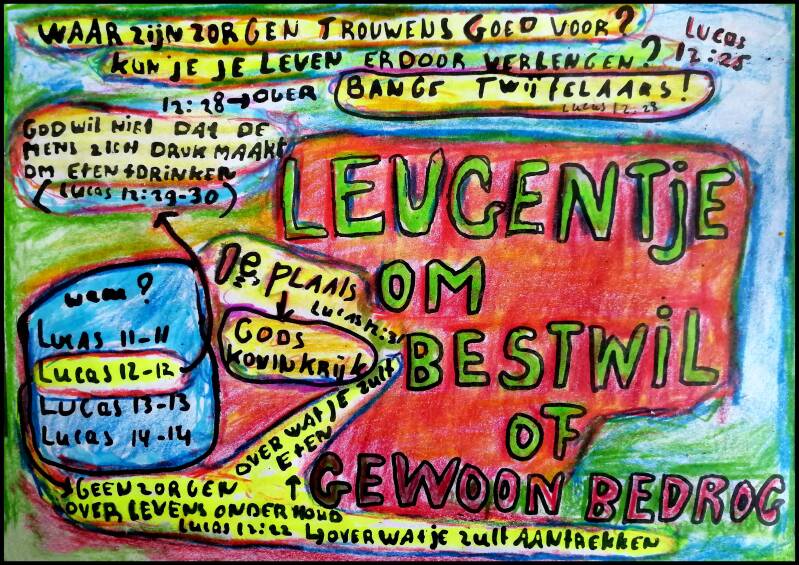 WAAR ZIJN ZORGEN TROUWENS GOED VOOR?
KUN JE JE LEVEN ERDOOR VERLENGEN?
LUCAS
12:25
12:28 → OVER
BANGE TWIJFELAARS!
LUCAS 12:28
GOD WIL NIET DAT DE
MENS ZICH DRUK MAAKT
OM ETEN + DRINKEN
(LUCAS 12:29-30)
LEUGENTJE
OM
BESTWIL
OF
GEWOON BEDROG
1e PLAATS
LUCAS 12:31
GODS
KONINKRIJK
waar?
LUCAS 11-11
LUCAS 12-12
LUCAS 13-13
LUCAS 14-14
OVER WAT JE ZULT
ETEN
GEEN ZORGEN
OVER LEVENSONDERHOUD
LUCAS 12:22
OVER WAT JE ZULT AANTREKKEN